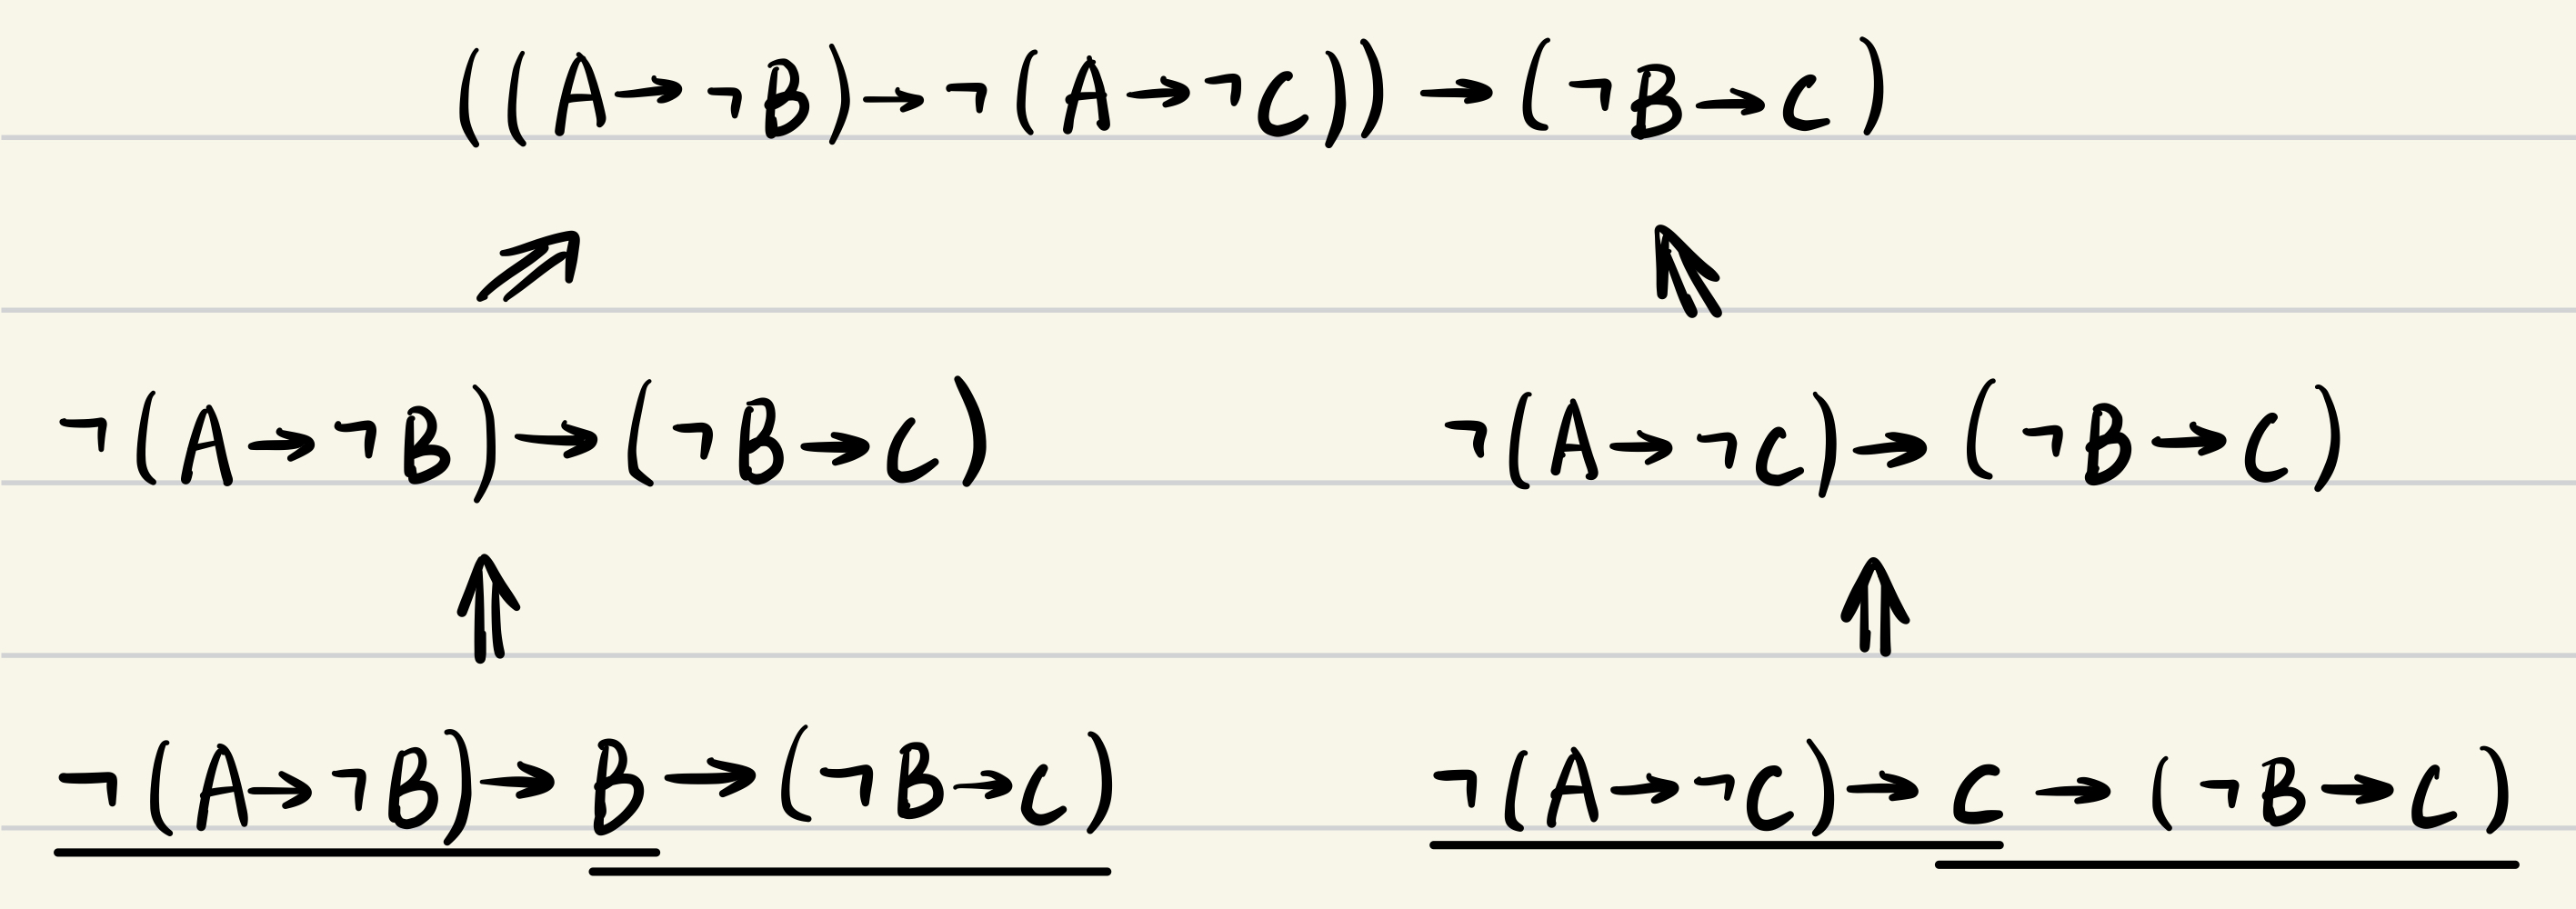 ((A→¬B)→¬(A→¬C))→(¬B→C)
⇗ ⇖
¬(A→¬B)→(¬B→C) ¬(A→¬C)→(¬B→C)
⇑ ⇑
¬(A→¬B)→B→(¬B→C) ¬(A→¬C)→C→(¬B→C)